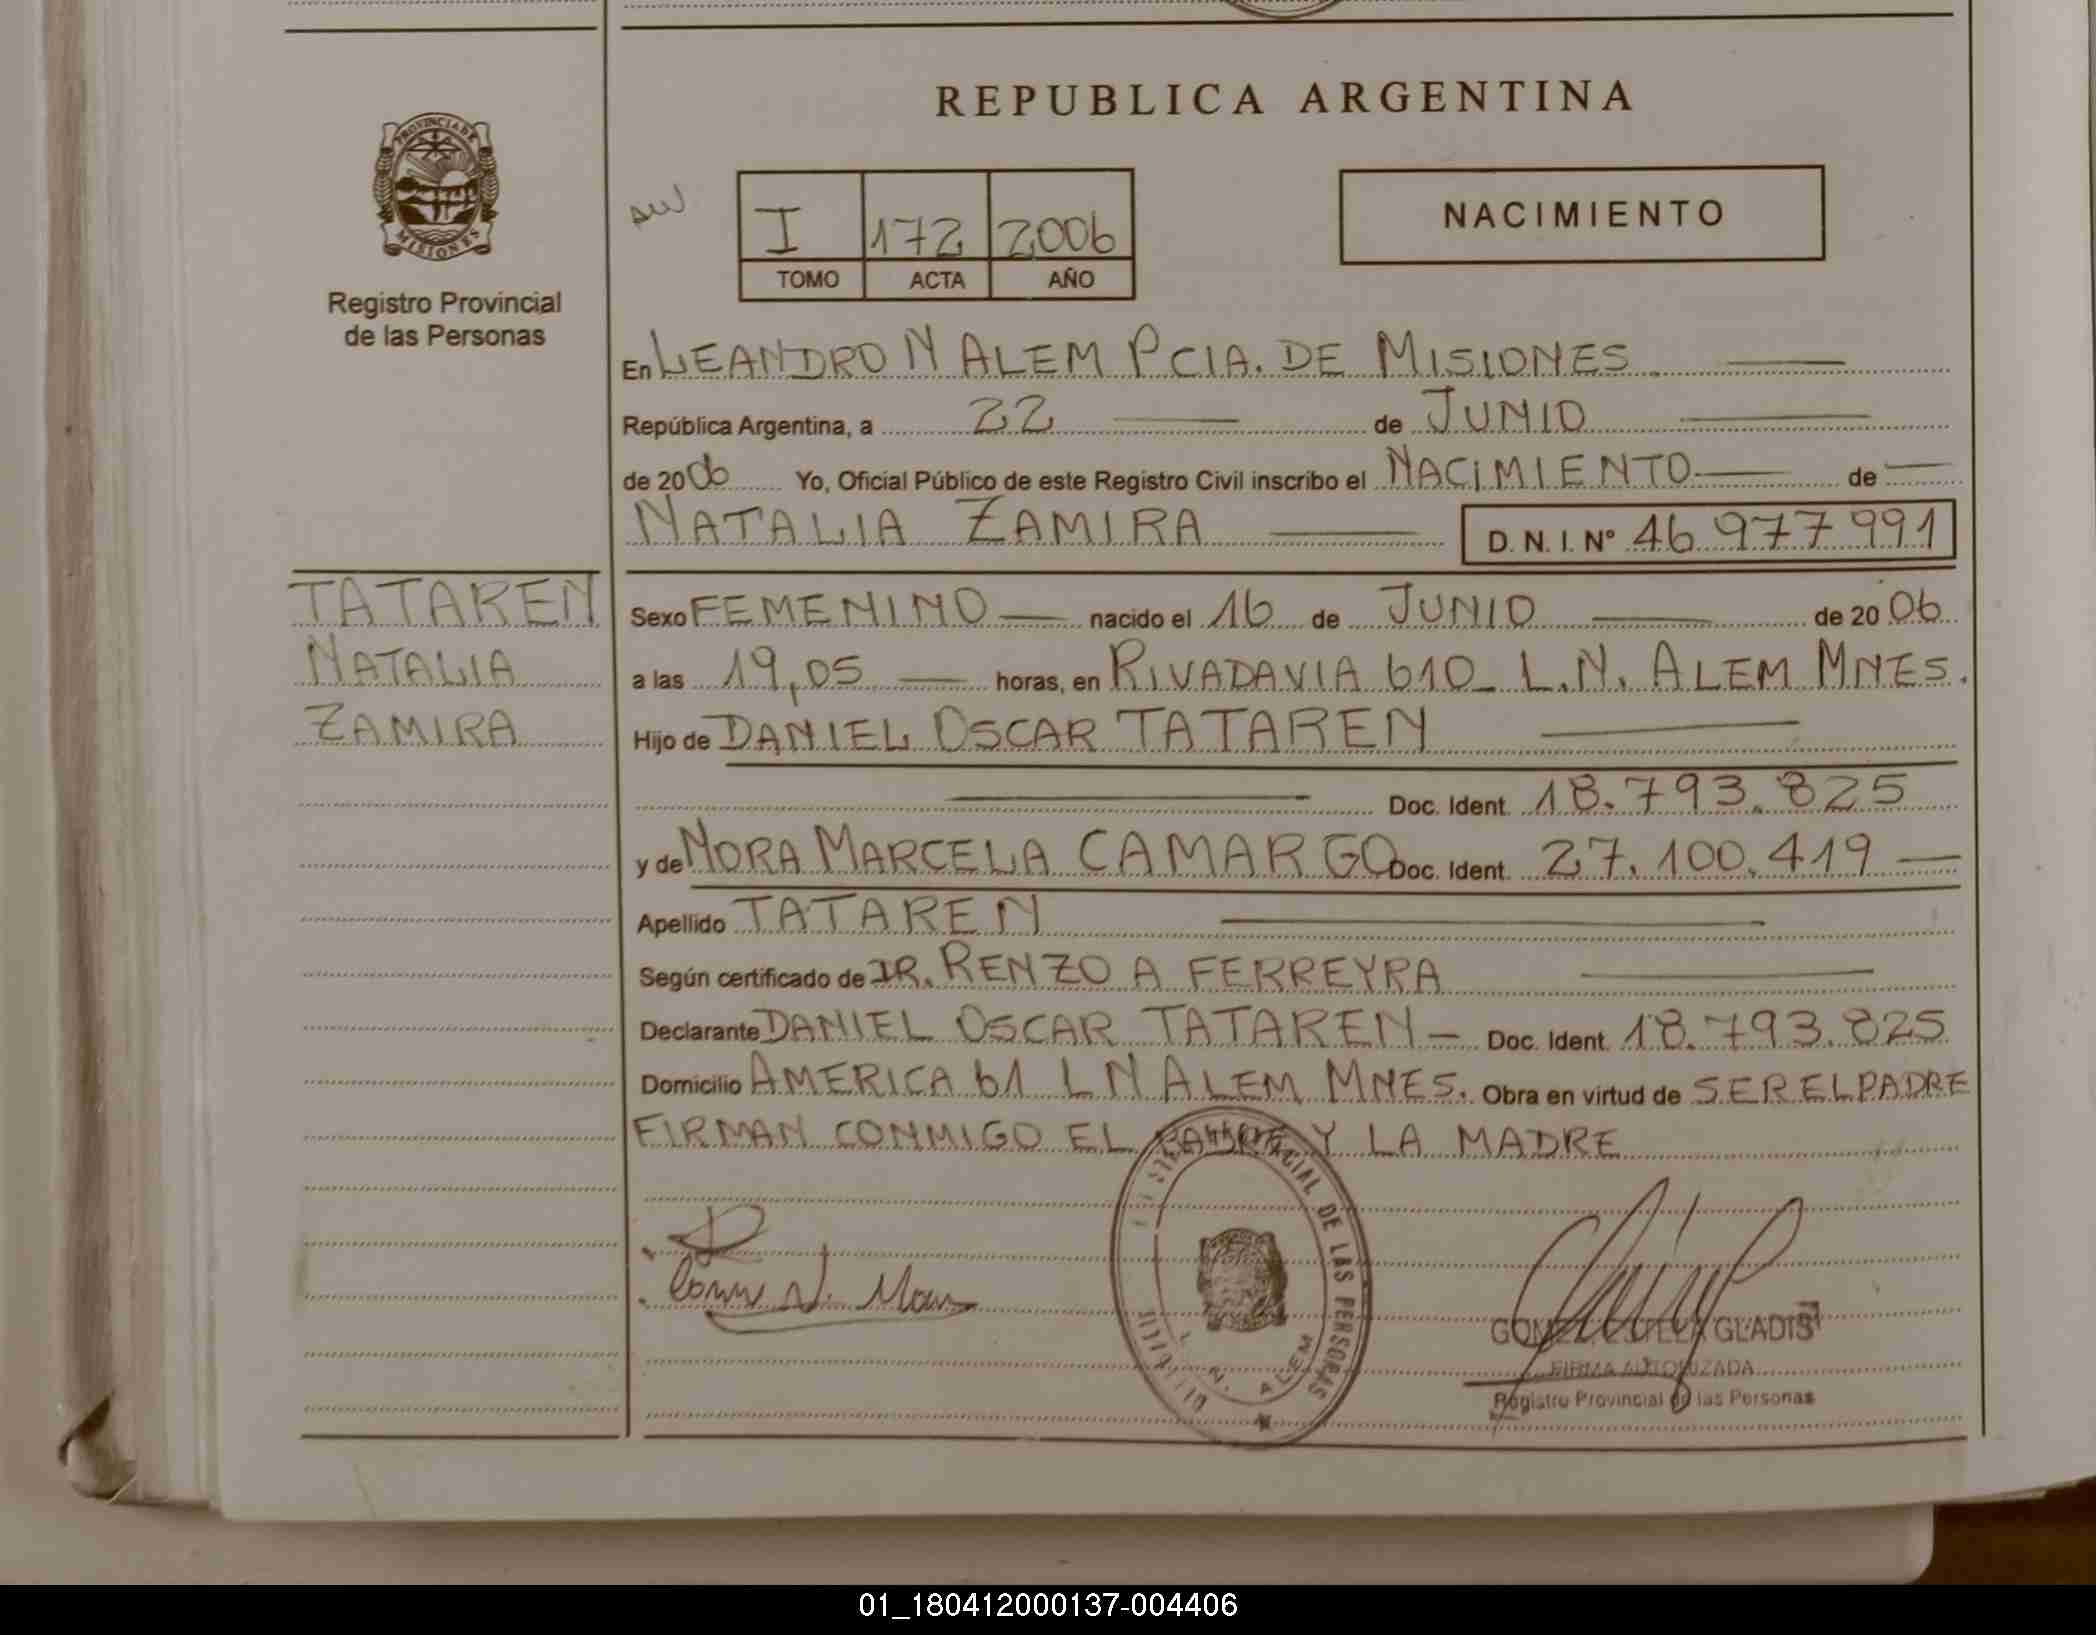 REPUBLICA ARGENTINA
PROVINCIA DE
MISIONES
Registro Provincial
de las Personas
I 172 2006
TOMO ACTA AÑO
NACIMIENTO
En LEANDRO N ALEM PCIA. DE MISIONES
República Argentina, a 22 de JUNIO
de 2006 Yo, Oficial Público de este Registro Civil inscribo el NACIMIENTO de
NATALIA ZAMIRA D. N. I. Nº 46 977 991
TATAREN
NATALIA
ZAMIRA
Sexo FEMENINO nacido el 16 de JUNIO de 2006
a las 19,05 horas, en RIVADAVIA 610_ L.N. ALEM MNES.
Hijo de DANIEL OSCAR TATAREN
Doc. Ident. 18.793.825
y de NORA MARCELA CAMARGO Doc. Ident. 27.100.419
Apellido TATAREN
Según certificado de DR. RENZO A FERREYRA
Declarante DANIEL OSCAR TATAREN - Doc. Ident. 18.793.825
Domicilio AMERICA 61 L N ALEM MNES. Obra en virtud de SER EL PADRE
FIRMAN CONMIGO EL PADRE Y LA MADRE
DE LAS PERSONAS
L. N. ALEM
GOMEZ ESTELA GLADIS
FIRMA AUTORIZADA
Registro Provincial de las Personas
01_180412000137-004406